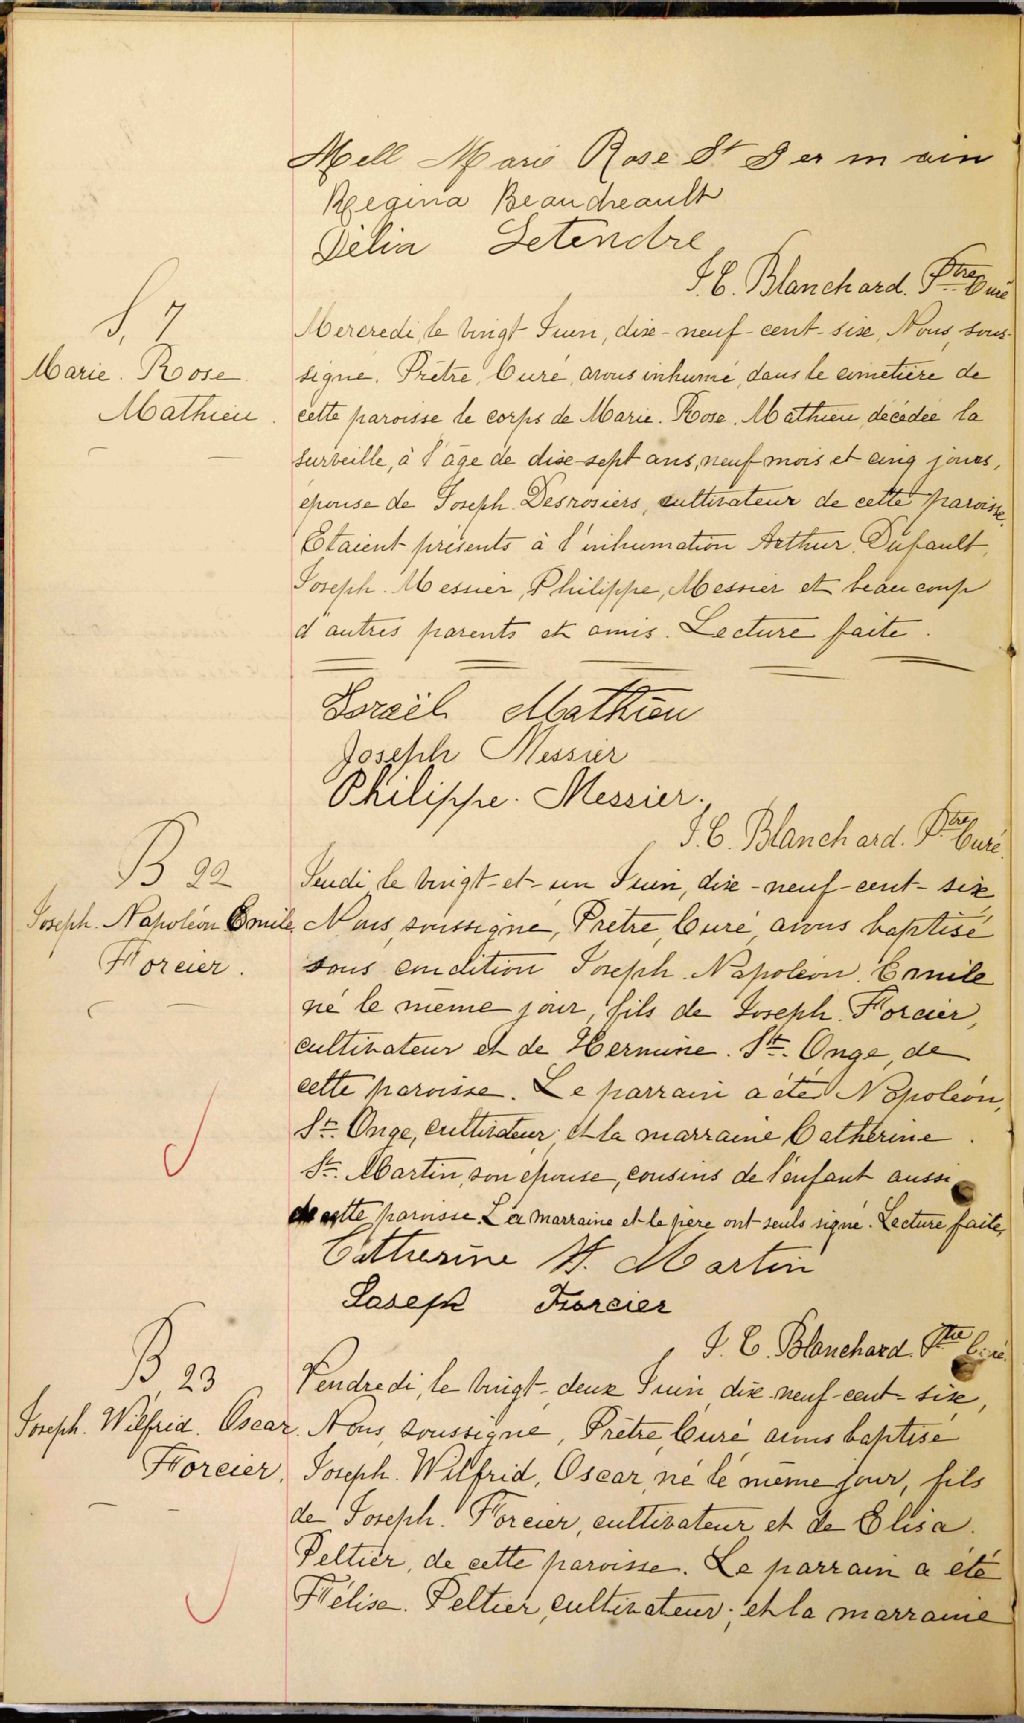 Mell Marie Rose St Germain
Regina Beaudreault
Délia Letendre
J. C. Blanchard. Ptre Curé
S, 7
Marie. Rose
Mathieu.
Mercredi, le vingt Juin, dix-neuf-cent-six, Nous, sous-
signé, Prêtre, Curé, avons inhumé, dans le cimetière de
cette paroisse le corps de Marie. Rose. Mathieu, décédée la
surveille, à l'âge de dix-sept ans, neuf mois et cinq jours,
épouse de Joseph Desrosiers, cultivateur de cette paroisse.
Etaient présents à l'inhumation Arthur. Dufault,
Joseph. Messier, Philippe, Messier et beaucoup
d'autres parents et amis. Lecture faite.
Israël Mathieu
Joseph Messier
Philippe. Messier.
J. C. Blanchard. Ptre Curé.
B 22
Joseph. Napoléon Emile
Forcier.
Jeudi, le vingt-et-un Juin, dix-neuf-cent-six,
Nous, soussigné, Prêtre, Curé, avons baptisé
sous condition Joseph. Napoléon. Emile
né le même jour, fils de Joseph. Forcier,
cultivateur et de Hermine. St. Onge, de
cette paroisse. Le parrain a été Napoléon,
St. Onge, cultivateur; et la marraine, Catherine.
St. Martin, son épouse, cousins de l'enfant aussi
de cette paroisse. La marraine et le père ont seuls signé. Lecture faite,
Catherine St. Martin
Joseph Forcier
J. C. Blanchard. Ptre Curé
B 23
Joseph. Wilfrid. Oscar.
Forcier.
Vendredi, le vingt-deux Juin, dix-neuf-cent-six,
Nous, soussigné, Prêtre, Curé, avons baptisé
Joseph. Wilfrid, Oscar, né le même jour, fils
de Joseph. Forcier, cultivateur et de Elisa.
Peltier, de cette paroisse. Le parrain a été
Félix. Peltier, cultivateur; et la marraine